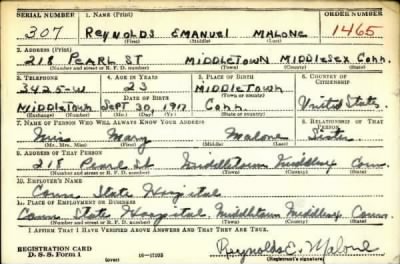 SERIAL NUMBER 1. NAME (Print) ORDER NUMBER
307 REYNOLDS EMANUEL MALONE 1465
(First) (Middle) (Last)
2. ADDRESS (Print)
218 PEARL ST MIDDLETOWN MIDDLESEX Conn.
(Number and street or R. F. D. number) (Town) (County) (State)
3. TELEPHONE 4. AGE IN YEARS 5. PLACE OF BIRTH 6. COUNTRY OF CITIZENSHIP
3425-W 23 MIDDLETOWN
DATE OF BIRTH (Town or county)
MIDDLETOWN SEPT 30, 1917 Conn. United States
(Exchange) (Number) (Mo.) (Day) (Yr.) (State or country)
7. NAME OF PERSON WHO WILL ALWAYS KNOW YOUR ADDRESS 8. RELATIONSHIP OF THAT PERSON
Miss Mary Malone Sister
(Mr., Mrs., Miss) (First) (Middle) (Last)
9. ADDRESS OF THAT PERSON
218 Pearl St Middletown Middlesex Conn.
(Number and street or R. F. D. number) (Town) (County) (State)
10. EMPLOYER'S NAME
Conn. State Hospital
11. PLACE OF EMPLOYMENT OR BUSINESS
Conn. State Hospital Middletown Middlesex Conn.
(Number and street or R. F. D. number) (Town) (County) (State)
I AFFIRM THAT I HAVE VERIFIED ABOVE ANSWERS AND THAT THEY ARE TRUE.
REGISTRATION CARD
D. S. S. Form 1 (over) Reynolds E. Malone
(Registrant's signature)